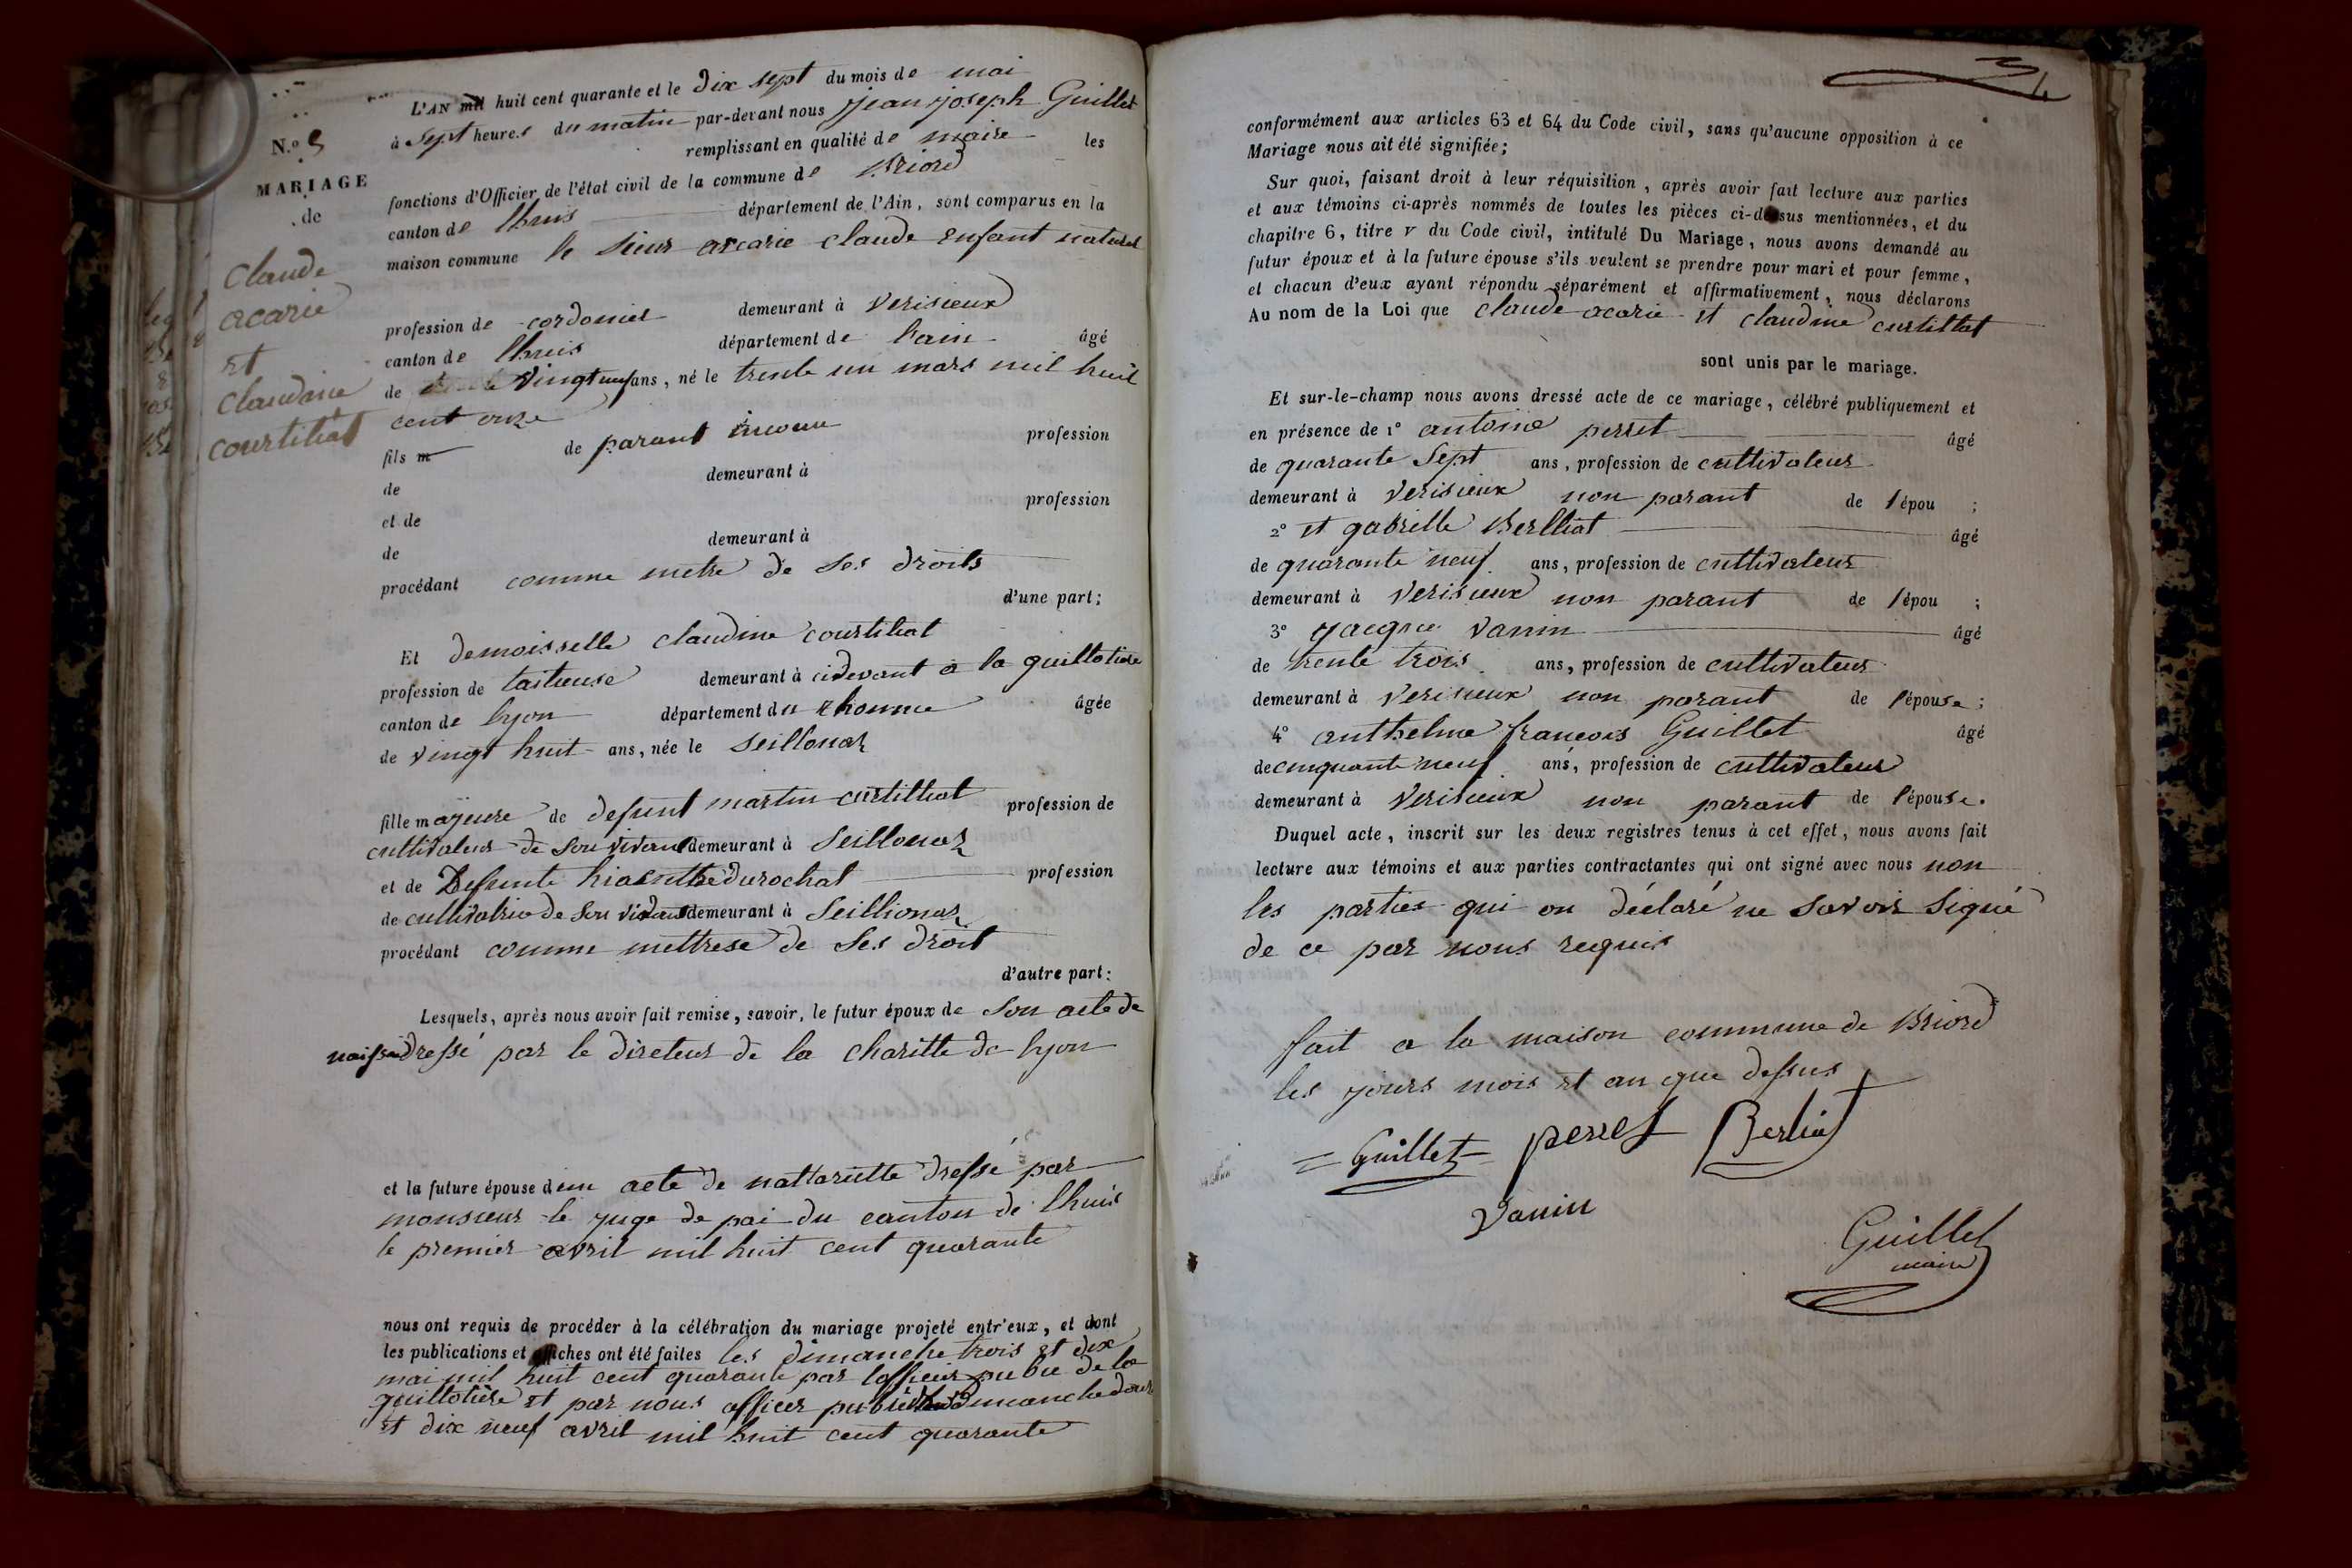 L'AN mil huit cent quarante et le dix sept du mois de mai
à sept heures du matin par-devant nous jean joseph Guillet
remplissant en qualité de maire les
fonctions d'Officier de l'état civil de la commune de Briord
canton de lhuis département de l'Ain, sont comparus en la
maison commune le sieur acarie claude enfant naturel
N.o 5
MARIAGE
de
Claude
acarie
et
Claudine
courtilliat
profession de cordonier demeurant à verisieux
canton de lhuis département de l'ain âgé
de vingt neuf ans, né le trente un mars mil huit
cent onze
fils de parant inconu profession
de demeurant à
et de profession
de demeurant à
procédant comme metre de ses droits
d'une part;
Et demoisselle claudine courtiliat
profession de demeurant à cidevant a la guillotiere
canton de lyon département du rhonne âgée
de vingt huit ans, née le seillonaz
fille majeure de defunt martin curtilliat profession de
cultivateur de son vivant demeurant à Seillonaz
et de Defunte hiasinthe durochat profession
de cultivatrice de son vivant demeurant à Seillionaz
procédant comme mettrese de ses droit
d'autre part:
Lesquels, après nous avoir fait remise, savoir, le futur époux de son acte de
dressé par le direteur de la charitte de lyon
et la future épouse d'un acte de nattoriette dressé par
monsieur le juge de pai du canton de lhuis
le premier avril mil huit cent quarante
nous ont requis de procéder à la célébration du mariage projeté entr'eux, et dont
les publications et affiches ont été faites les dimanche trois et dix
mai mil huit cent quarante par lofficier publie de la
guillotière et par nous officer public les dimanche douze
et dix neuf avril mil huit cent quarante
conformément aux articles 63 et 64 du Code civil, sans qu'aucune opposition à ce
Mariage nous ait été signifiée;
Sur quoi, faisant droit à leur réquisition, après avoir fait lecture aux parties
et aux témoins ci-après nommés de toutes les pièces ci-dessus mentionnées, et du
chapitre 6, titre v du Code civil, intitulé Du Mariage, nous avons demandé au
futur époux et à la future épouse s'ils veulent se prendre pour mari et pour femme,
et chacun d'eux ayant répondu séparément et affirmativement, nous déclarons
Au nom de la Loi que claude acarie et claudine curtillat
sont unis par le mariage.
Et sur-le-champ nous avons dressé acte de ce mariage, célébré publiquement et
en présence de 1° antoine perret âgé
de quarante sept ans, profession de cultivateur
demeurant à verisieux non parant de l'épou ;
2° et gabrielle Berlliat âgé
de quarante neuf ans, profession de cultivateur
demeurant à verisieux non parant de l'épou ;
3° jacque vanin âgé
de trente trois ans, profession de cultivateur
demeurant à verisieux non parant de l'épouse;
4° anthelme francois Guillet âgé
de cinquante neuf ans, profession de cultivateur
demeurant à verisieux non parant de l'épouse.
Duquel acte, inscrit sur les deux registres tenus à cet effet, nous avons fait
lecture aux témoins et aux parties contractantes qui ont signé avec nous non
les parties qui on déclaré ne savoir signé
de ce par nous requis
fait a la maison commune de Briord
les jours mois et an que dessus
Guillet perret Berliat
Vanin
Guillet
maire